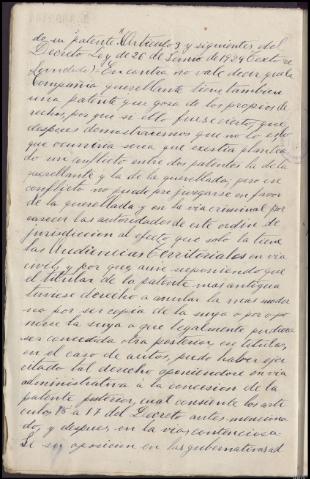 de su patente. (Artículo 3 y siguientes del
Decreto Ley de 26 de Junio de 1929 (texto re
fundido). En contra no vale decir que la
Compañia querellante tiene tambien
una patente que goza de los propios de
rechos, por que si ello fuese cierto, que
despues demostraremos que no lo es, lo
que ocurriria seria que existia plantea
do un conflicto entre dos patentes la de la
querellante y la de la querellada, pero un
conflicto no puede pre juzgarse en favor
de la querellada y en la via criminal por
carecer las autoridades de este orden de
jurisdiccion al efecto que solo la tiene
las Audiencias territoriales en via
civil; y por que, aun suponiendo que
el titular de la patente mas antigua
tuviese derecho a anular la mas moder
na por ser copia de la suya o por opo
nerse la suya a que legalmente pudiera
ser concedida otra posterior, en titular,
en el caso de autos, pudo haber ejer
citado tal derecho oponiendose en via
administrativa á la concesion de la
patente posterior, cual consiente los arti
culos 15 a 17 del Decreto antes menciona
do, y despues, en la via contenciosa
Si su oposicion en las gubernativas